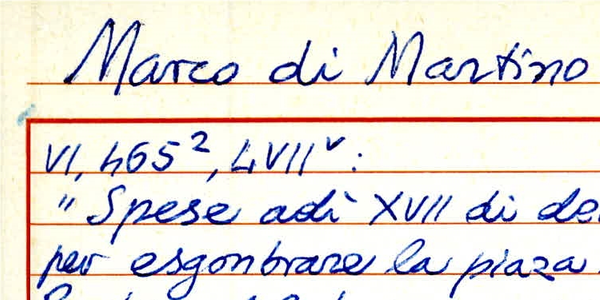 Marco di Martino
VI, 465², LVIIᵛ:
" Spese adì XVII di de
per esgonbrare la piaza